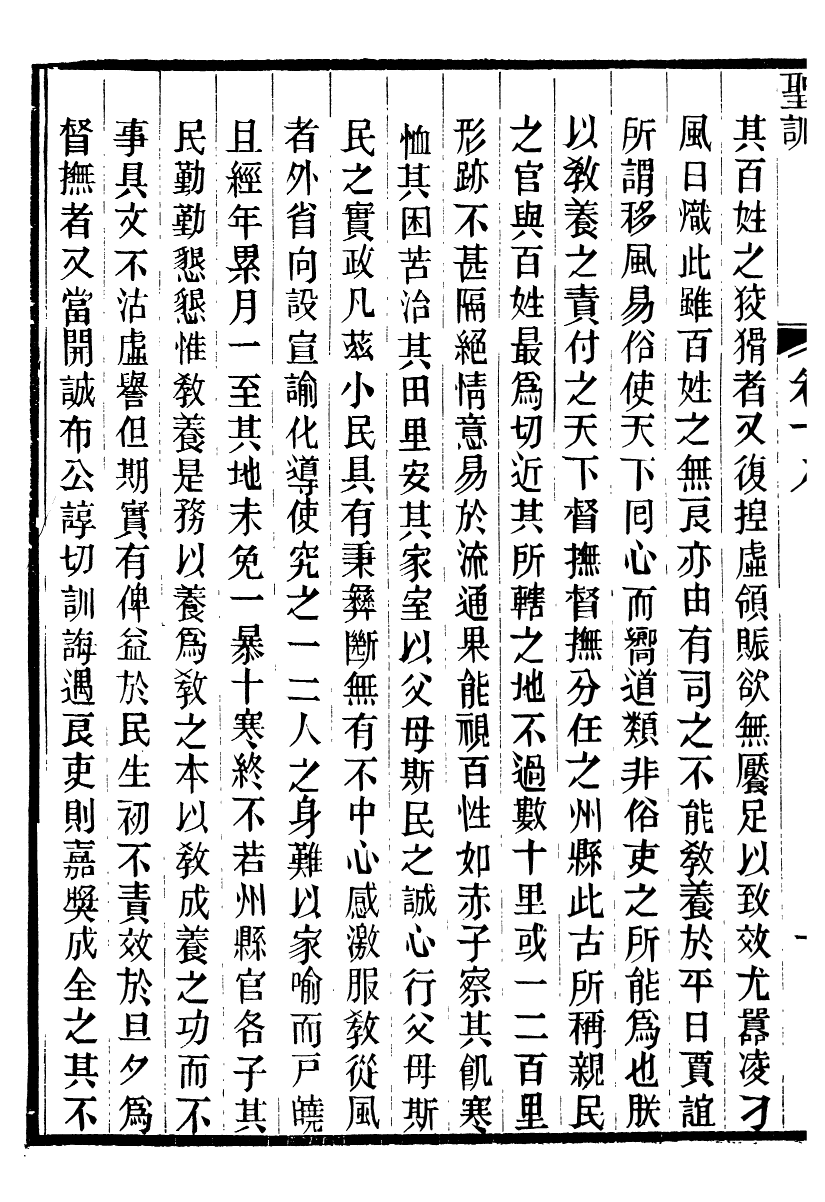 聖訓
其百姓之狡猾者又復揑虛領賑欲無饜足以致效尤嚚凌刁
風日熾此雖百姓之無良亦由有司之不能敎養於平日賈誼
所謂移風易俗使天下囘心而嚮道類非俗吏之所能爲也朕
以敎養之責付之天下督撫督撫分任之州縣此古所稱親民
之官與百姓最爲切近其所轄之地不過數十里或一二百里
形跡不甚隔絕情意易於流通果能視百姓如赤子察其飢寒
恤其困苦治其田里安其家室以父母斯民之誠心行父母斯
民之實政凡茲小民具有秉彝斷無有不中心感激服敎從風
者外省向設宣諭化導使究之一二人之身難以家喻而戶曉
且經年累月一至其地未免一暴十寒終不若州縣官各子其
民勤勤懇懇惟敎養是務以養爲敎之本以敎成養之功而不
事具文不沽虛譽但期實有俾益於民生初不責效於旦夕爲
督撫者又當開誠布公諄切訓誨遇良吏則嘉獎成全之其不